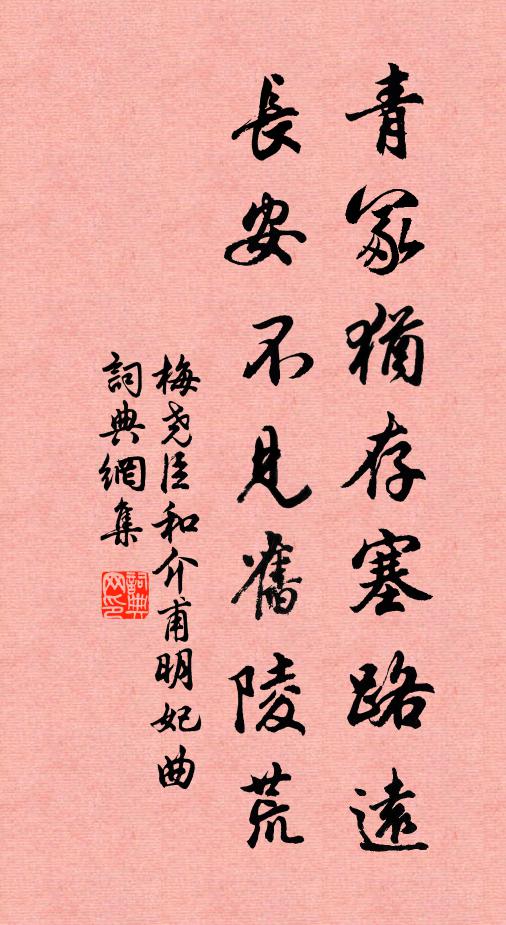 青冢猶存塞路遠
長安不見舊陵荒
梅尧臣和介甫明妃曲
詞典網集
詞典网印